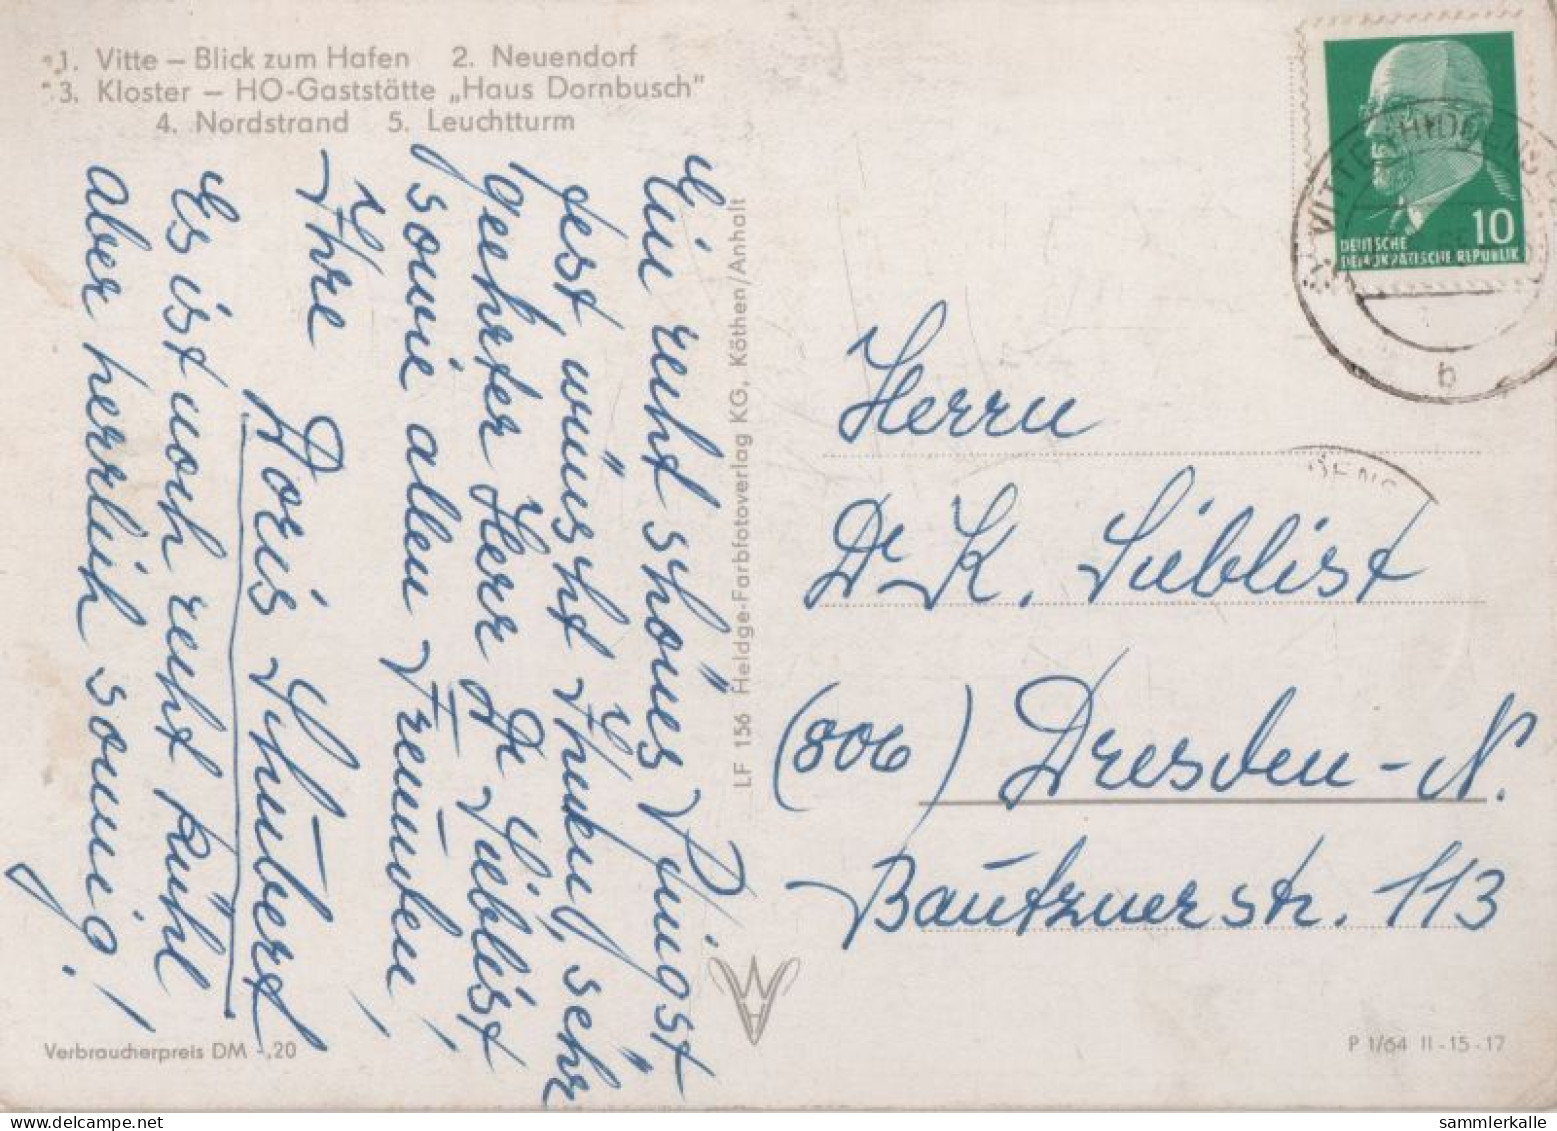 1. Vitte – Blick zum Hafen 2. Neuendorf
3. Kloster – HO-Gaststätte „Haus Dornbusch"
4. Nordstrand 5. Leuchtturm
Ein recht schönes Pfingst-
fest wünscht Ihnen, sehr
geehrter Herr Dr. Lieblist
sowie allen Freunden,
Ihre
Doris Schubert
Es ist noch recht kühl
aber herrlich sonnig!
LF 156 Heldge-Farbfotoverlag KG, Köthen/Anhalt
10
DEUTSCHE
DEMOKRATISCHE REPUBLIK
VITTE HIDDENSEE
b
DENS
Herrn
Dr. K. Lieblist
(806) Dresden-N.
Bautznerstr. 113
Verbraucherpreis DM -,20
P 1/64 II-15-17
sammlerkalle